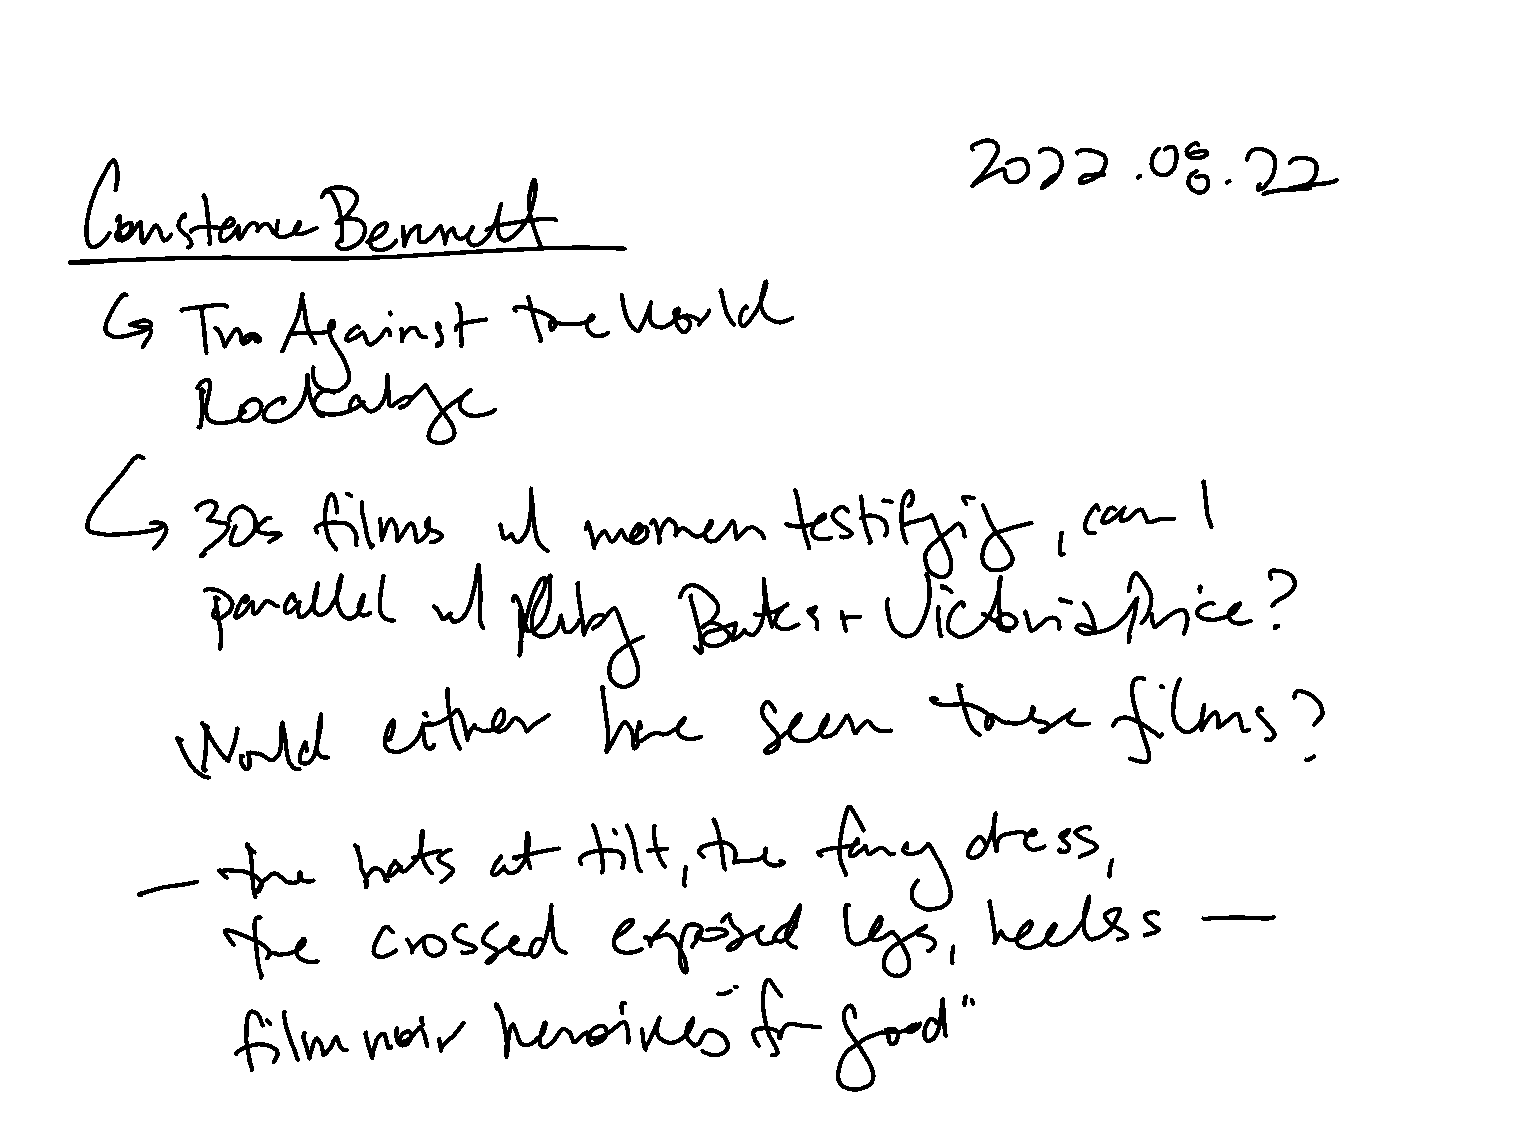 2022.08.22
Constance Bennett
↳ Two Against the World
Rockabye
↳ 30s films w/ women testifying, can I
parallel w/ Ruby Bates + Victoria Price?
Would either have seen these films?
— the hats at tilt, the fancy dress,
the crossed exposed legs, heels —
film noir heroines "for good"